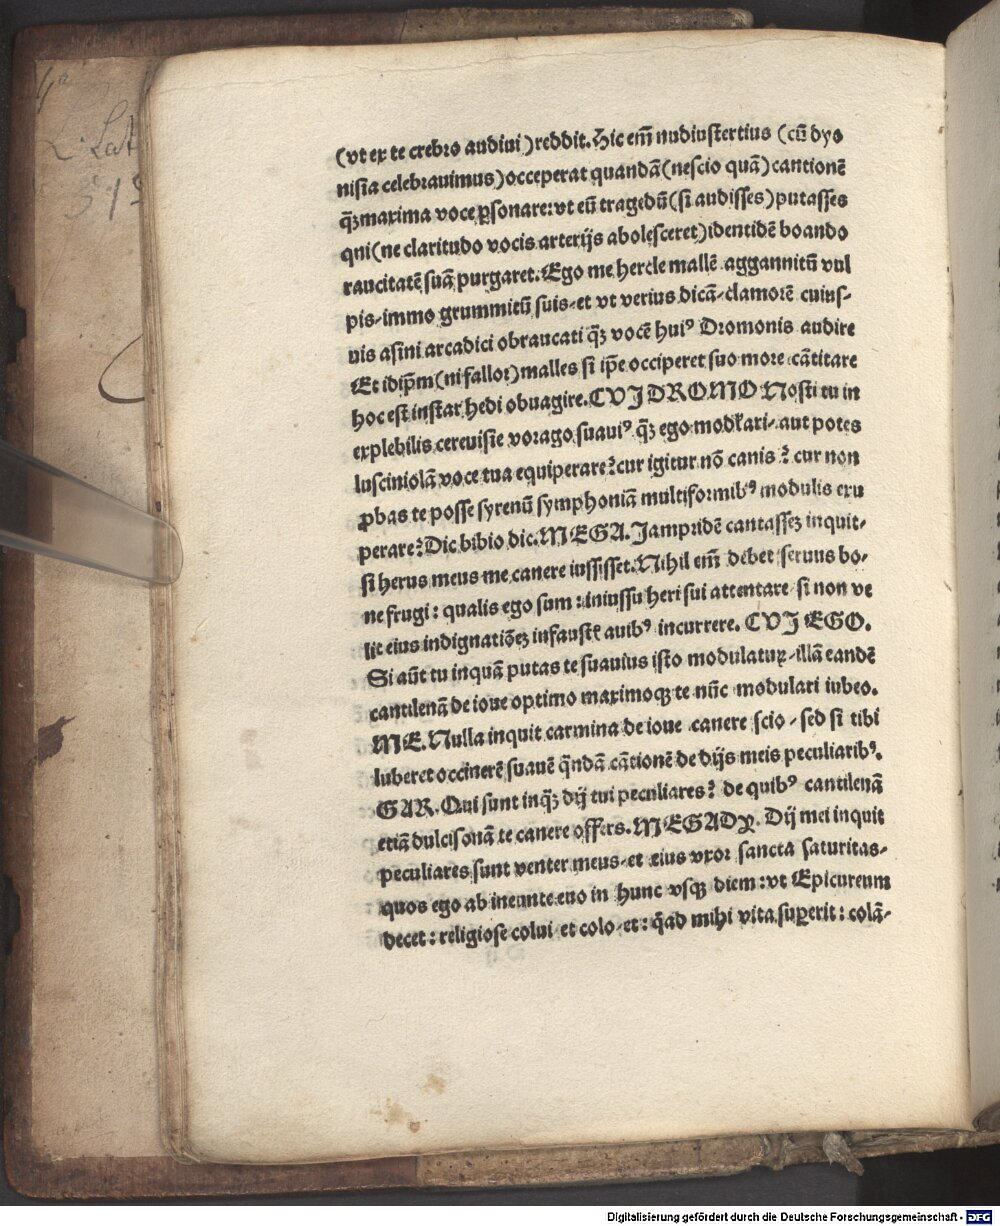 4°
L. Lat
(vt ex te crebro audiui) reddit. Hic em̄ nudiustertius (cū dyo
nisia celebrauimus) occeperat quandā (nescio quā) cantionē
q̄ʒ maxima voce ꝑsonare: vt eū tragedū (si audisses) putasses
qui (ne claritudo vocis arterijs abolesceret) identidē boando
raucitatē suā purgaret. Ego me hercle mallē aggannitū vul
pis, immo grummitū suis, et vt verius dicā, clamorē cuius-
uis asini arcadici obraucati q̄ʒ vocē huiꝰ Dromonis audire
Et idip̄m (ni fallor) malles si ip̄e occiperet suo more cātitare
hoc est instar hedi obuagire. CVI DROMO Nosti tu in
explebilis cereuisie vorago suauiꝰ q̄ʒ ego modl̄ari, aut potes
lusciniolā voce tua equiperare? cur igitur nō canis? cur non
ꝓbas te posse syrenū symphoniā multiformibꝰ modulis exu
perare? Dic bibio dic. MEGA. Jampridē cantasseʒ inquit,
si herus meus me canere iussisset. Nihil em̄ debet seruus bo-
ne frugi: qualis ego sum: iniussu heri sui attentare si non ve
lit eius indignatiōeʒ infauste auibꝰ incurrere. CVI EGO.
Si aūt tu inquā putas te suauius isto modulaturꝫ, illā eandē
cantilenā de ioue optimo maximoqꝫ te nūc modulari iubeo.
ME. Nulla inquit carmina de ioue canere scio, sed si tibi
luberet occinerē suauē q̄ndā cātionē de dijs meis peculiaribꝰ.
GAR. Qui sunt inq̄ʒ dij tui peculiares? de quibꝰ cantilenā
etiā dulcisonā te canere offers. MEGADꝜ. Dij mei inquit
peculiares sunt venter meus, et eius vxor sancta saturitas,
quos ego ab ineunte euo in hunc vsqꝫ diem: vt Epicureum
decet: religiose colui et colo, et: q̄ad mihi vita suꝑerit: colā,
Digitalisierung gefördert durch die Deutsche Forschungsgemeinschaft - DFG